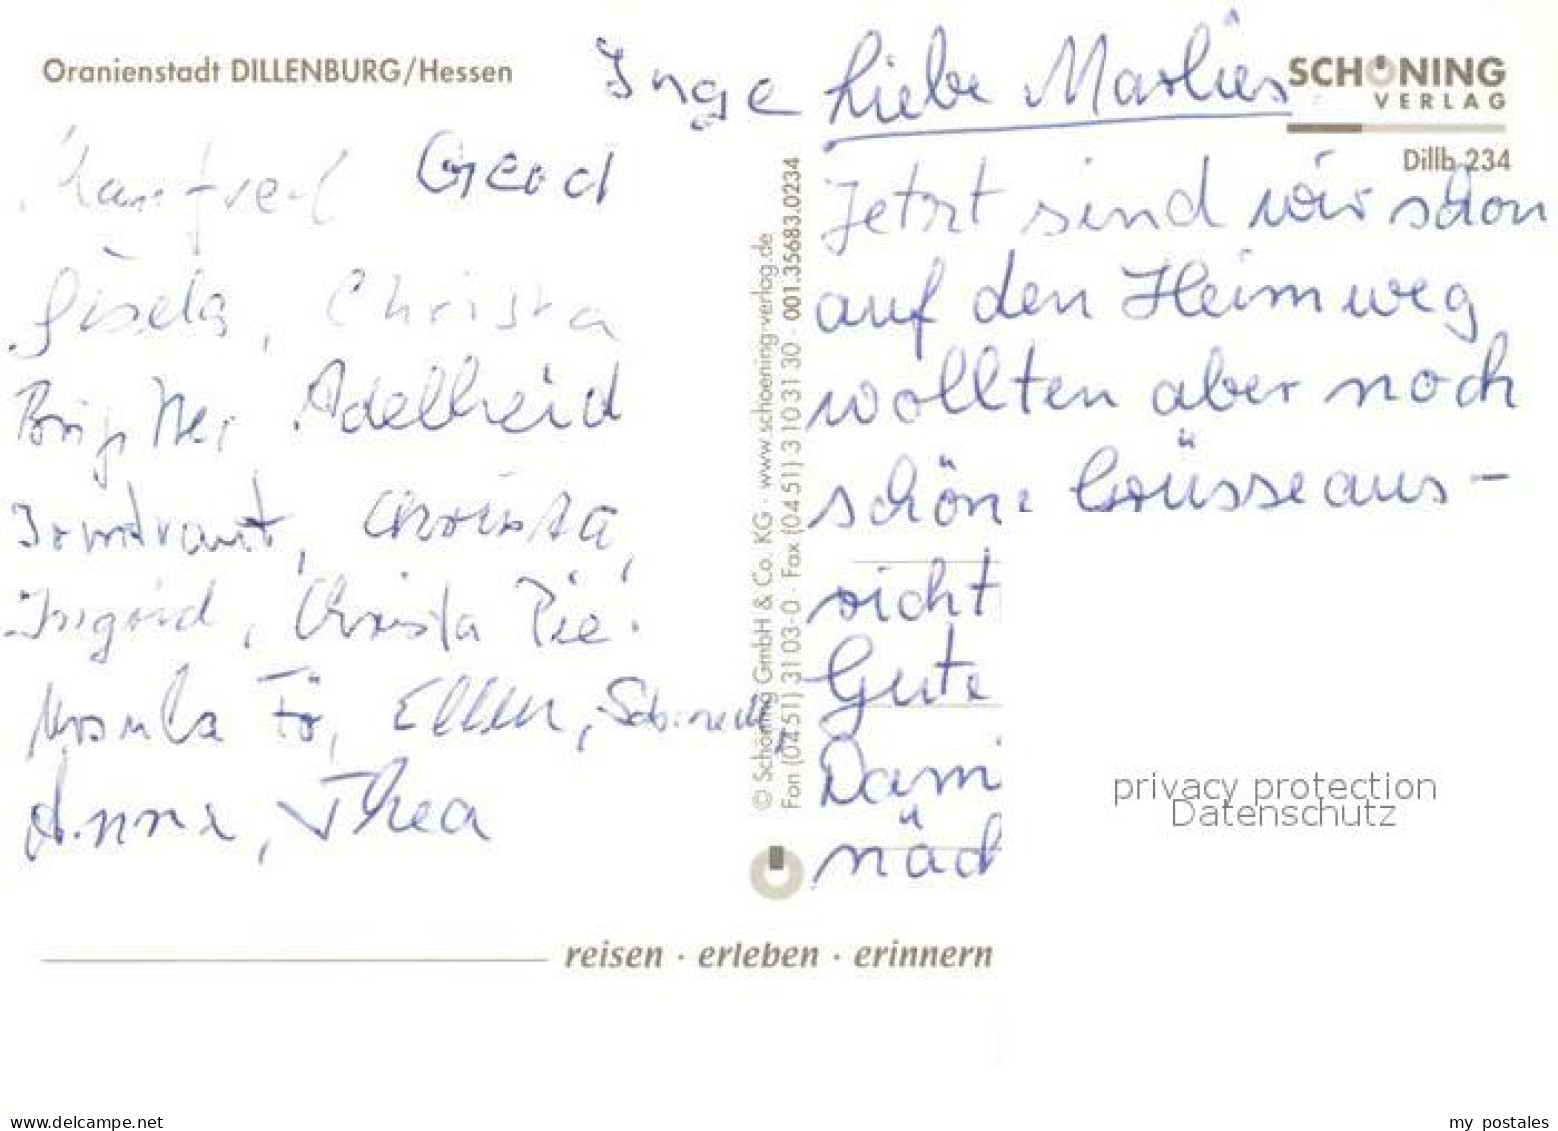 Oranienstadt DILLENBURG/Hessen
Inge
Manfred Gerd
Gisela, Christa
Brigitte, Adelheid
Irmtraut, Christa,
Ingrid, Christa Pie!
Ursula Fö, Ellen,
Anne, Thea
© Schöning GmbH & Co. KG · www.schoening-verlag.de
Fon (04 51) 31 03-0 · Fax (04 51) 3 10 31 30 · 001.35683.0234
SCHÖNING
VERLAG
Dillb 234
Liebe Marlies
Jetzt sind wir schon
auf den Heimweg
wollten aber noch
schöne Grüsse aus-
richt
Gute
Dami
näch
reisen · erleben · erinnern
privacy protection
Datenschutz
oldthing.net
my postales